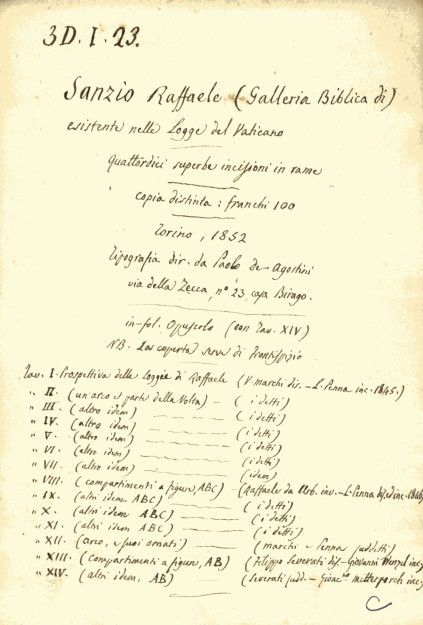 3D. I. 23.
Sanzio Raffaele (Galleria Biblica di)
esistente nelle Logge del Vaticano
quattordici superbe incissioni in rame
copia distinta : franchi 100
Torino, 1852
Tipografia dir. da Paolo de-Agostini
via della Zecca, nº 23, casa Birago.
in-fol. Opuscolo (con Tav. XIV)
NB. La coperta serve di frontispizio
Tav. I. Prospettiva delle Loggie di Raffaele (V. marchi dis. - L. Penna inc. 1845.)
" II. (un arco e parte della Volta) - (i detti)
" III. (altro idem) (i detti)
" IV. (altro idem) (i detti)
" V. (altro idem) (i detti)
" VI. (altro idem) (i detti)
" VII. (altro idem) (idem)
" VIII. (compartimenti a figure, ABC) - (Raffaele da Urb. inv. - L. Penna dis. ed inc.
" IX. (altri idem ABC) (i detti)
" X. (altri idem ABC) (i detti)
" XI. (altri idem ABC) (i detti)
" XII. (arco, e suoi ornati) (marchi e Penna suddetti)
" XIII. (compartimenti a figure, AB) (Filippo Severati dis. - Giovanni Wenzel inc
" XIV. (altri idem, AB) (Severati sudd. - Gioac.no inc
C